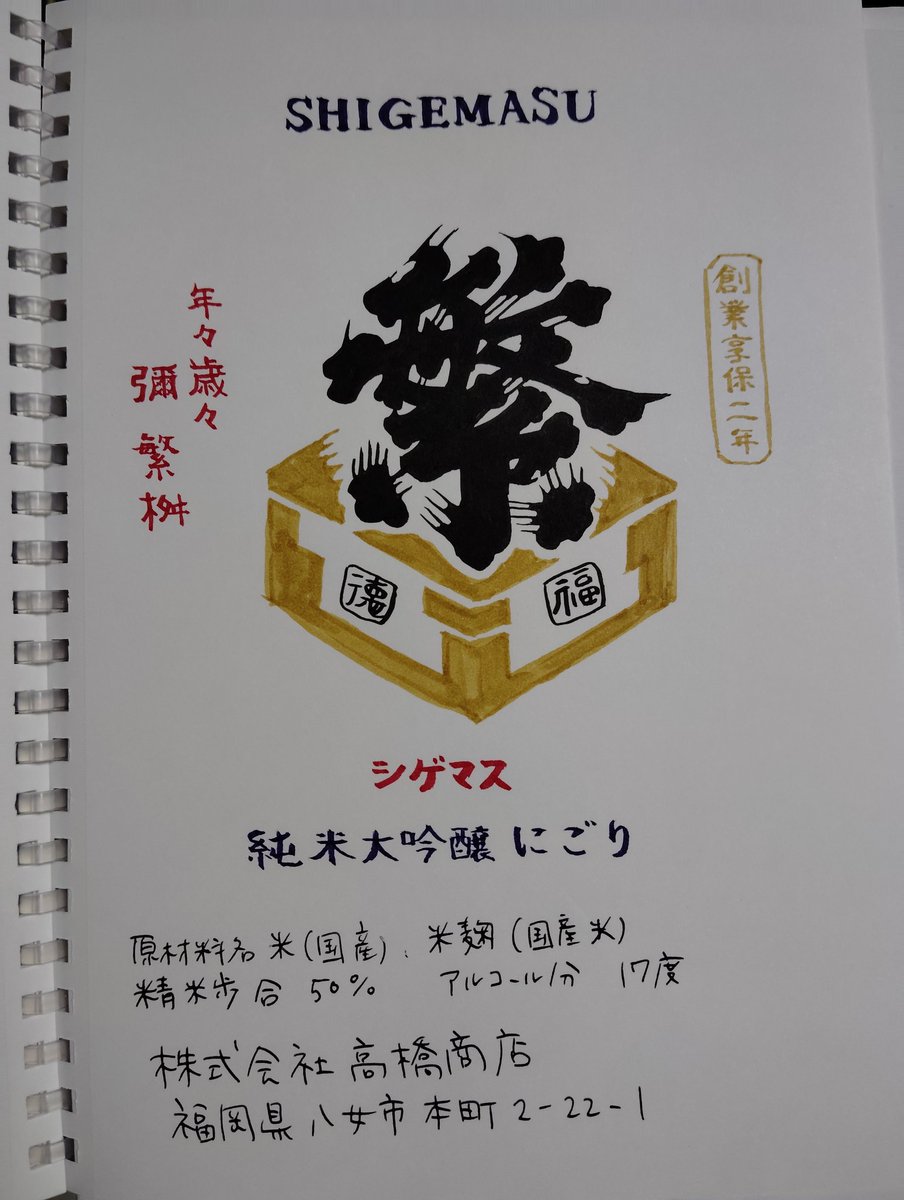 SHIGEMASU
創業享保二年
年々歳々
彌繁桝
繁
德
福
シゲマス
純米大吟醸 にごり
原材料名 米(国産)、米麹(国産米)
精米歩合 50% アルコール分 17度
株式会社 高橋商店
福岡県八女市本町2-22-1